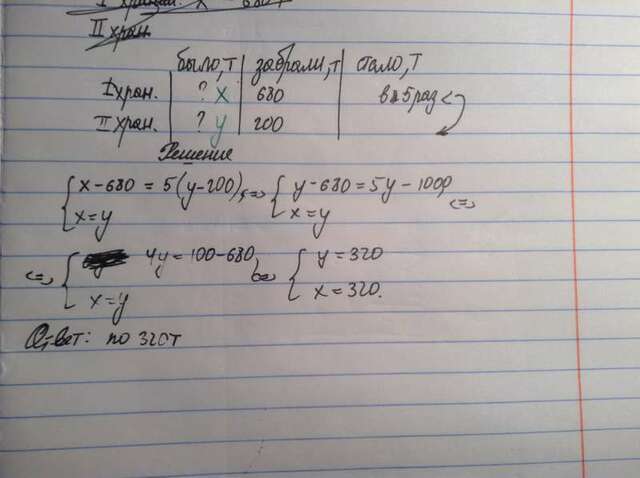 II хран.
было, т забрали, т стало, т
I хран. ? x 680 в 5 раз <
II хран. ? y 200
Решение
{ x - 680 = 5(y - 200), <=> { y - 680 = 5y - 1000 <=>
x = y x = y
<=> { 4y = 100 - 680, <=> { y = 320
x = y x = 320.
Ответ: по 320т